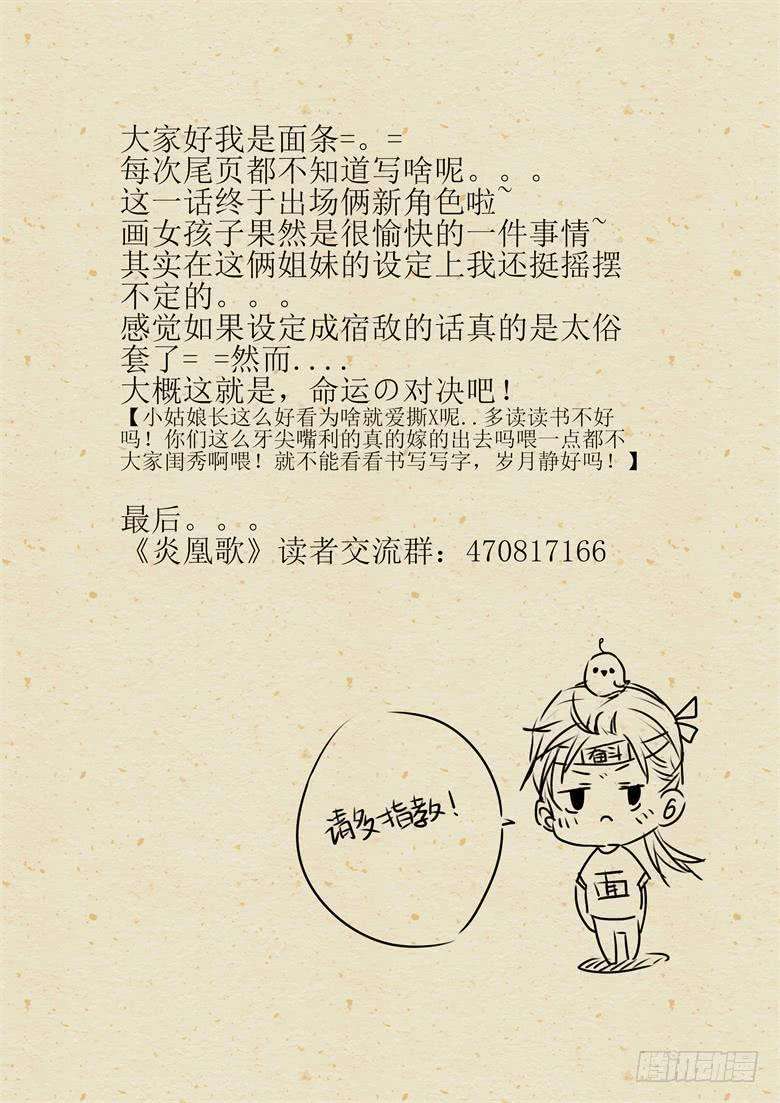 大家好我是面条=。=
每次尾页都不知道写啥呢。。。
这一话终于出场俩新角色啦~
画女孩子果然是很愉快的一件事情~
其实在这俩姐妹的设定上我还挺摇摆
不定的。。。
感觉如果设定成宿敌的话真的是太俗
套了= =然而....
大概这就是，命运の对决吧！
【小姑娘长这么好看为啥就爱撕X呢..多读读书不好
吗！你们这么牙尖嘴利的真的嫁的出去吗喂一点都不
大家闺秀啊喂！就不能看看书写写字，岁月静好吗！】
最后。。。
《炎凰歌》读者交流群：470817166
奋斗
请多指教！
面
腾讯动漫